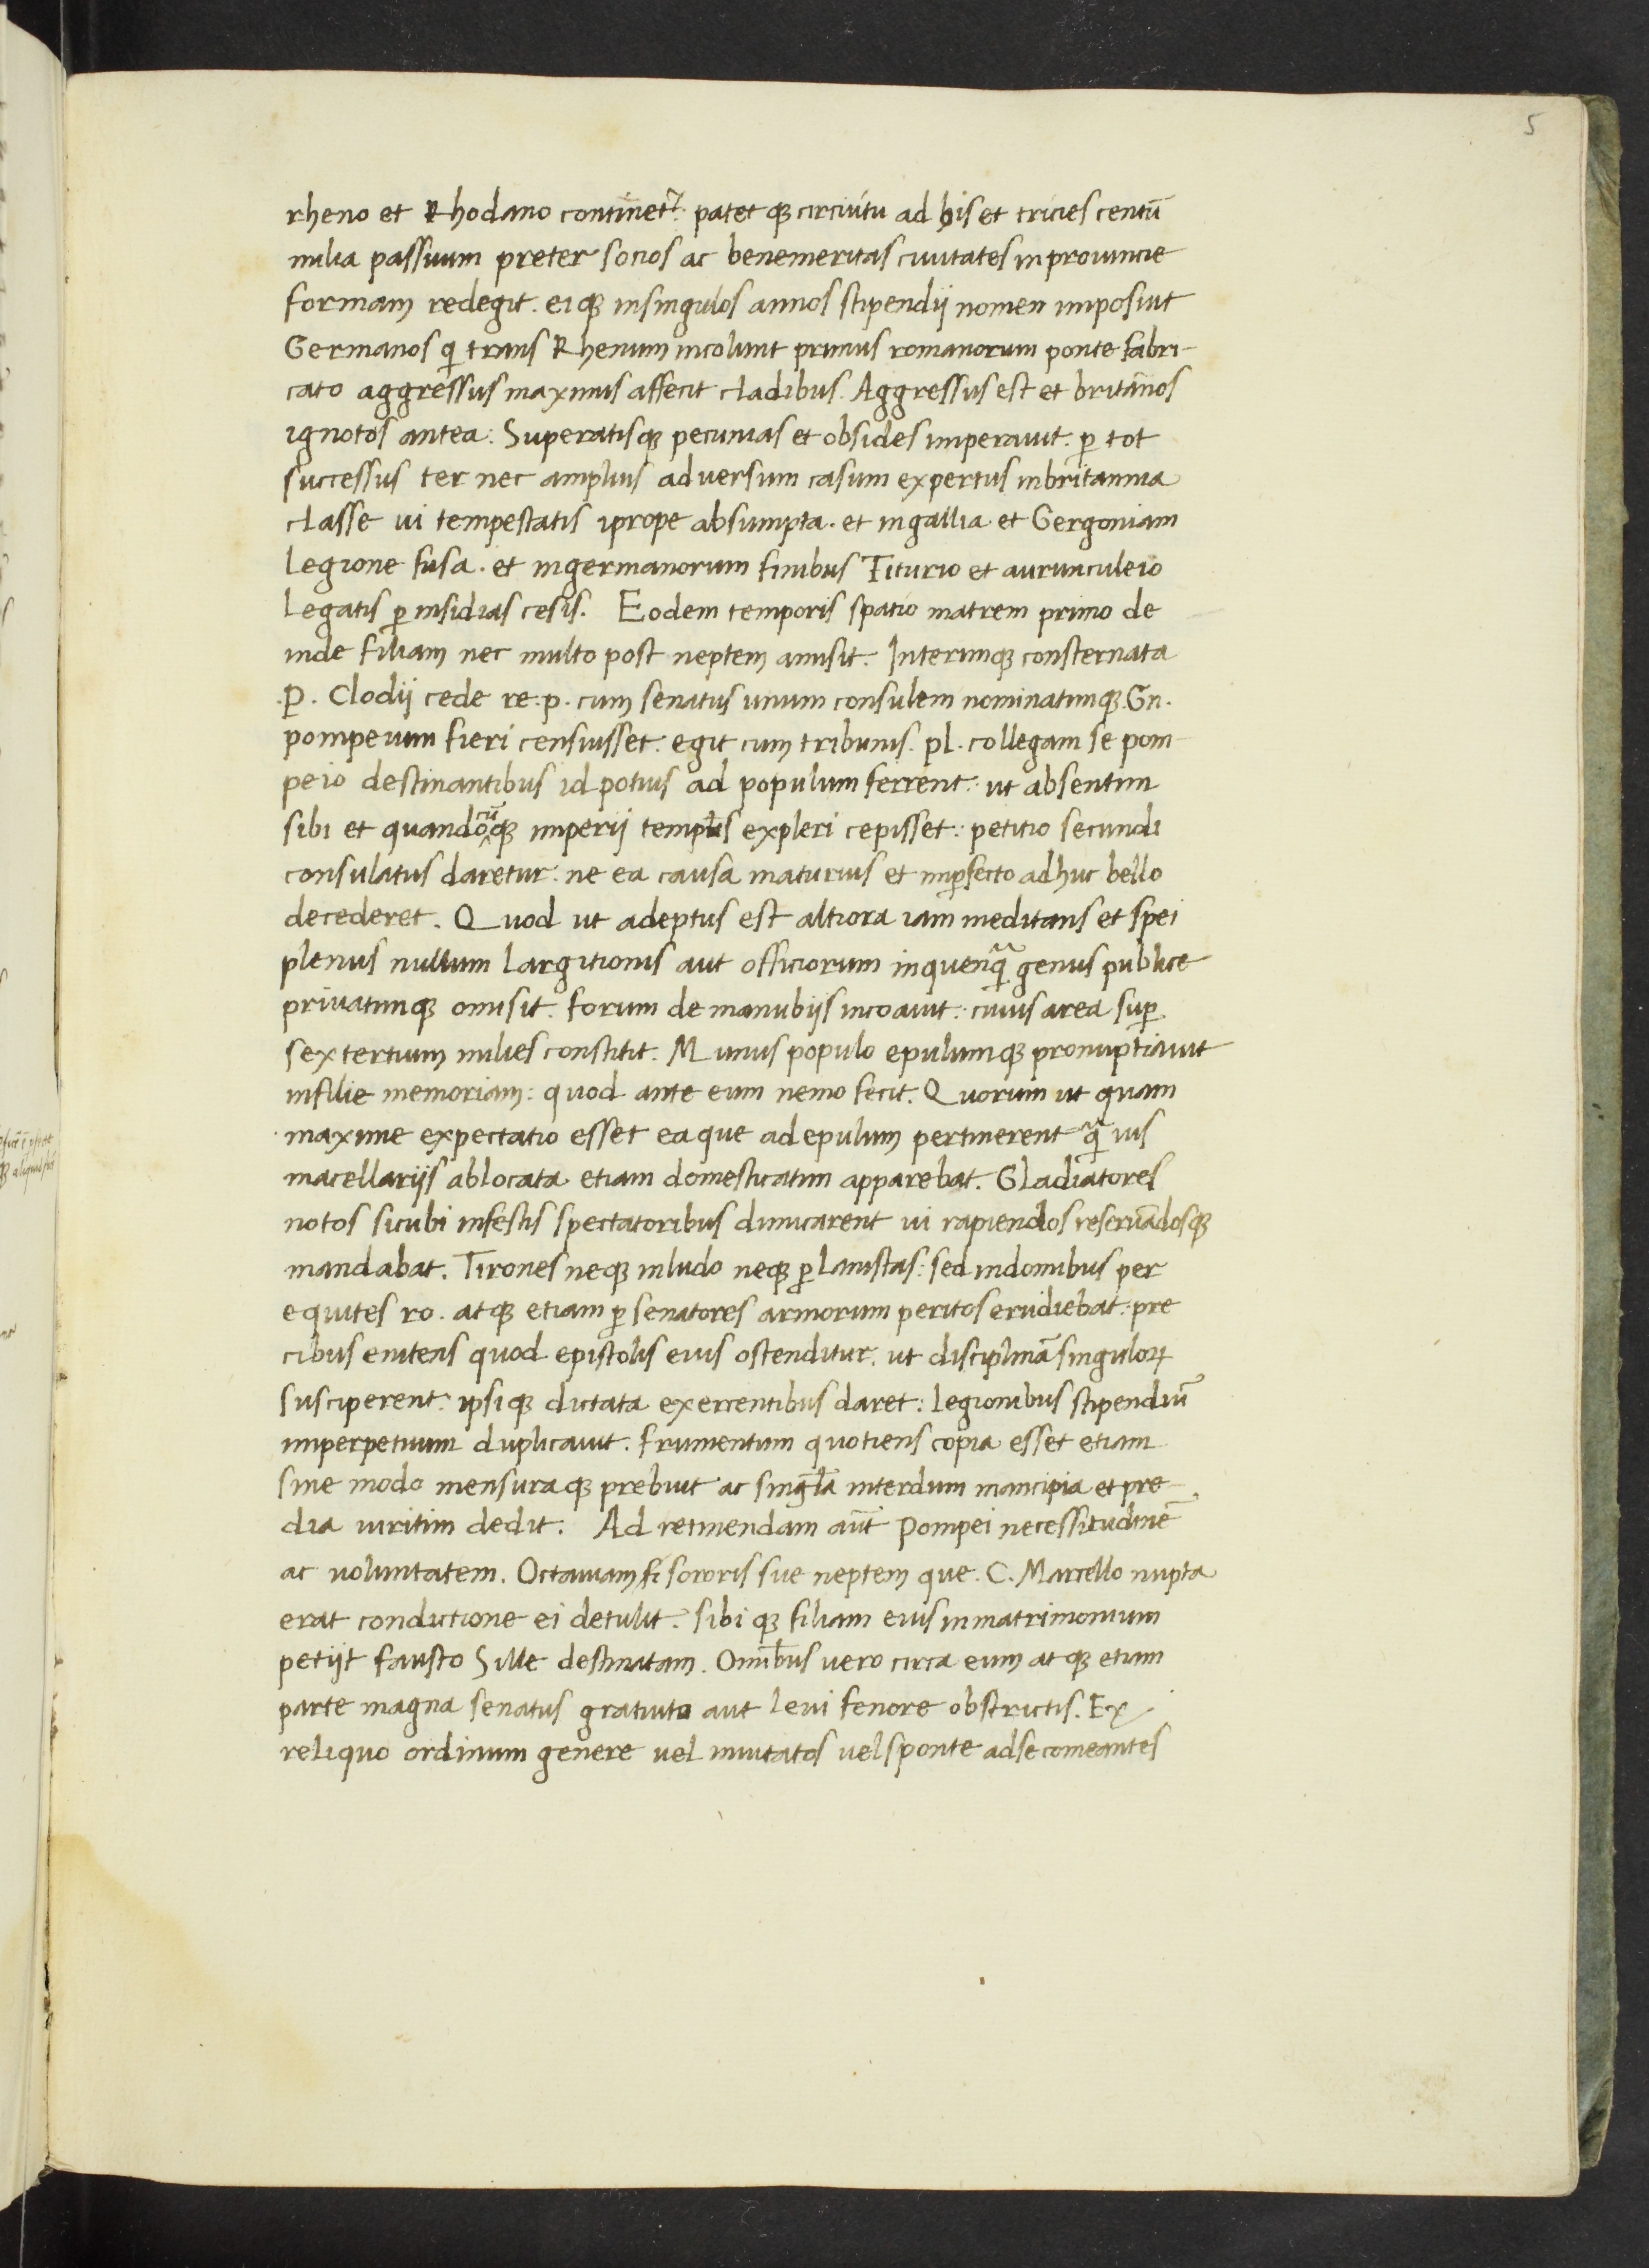 5
rheno et Rhodano continet᷑: patetq; circuitu ad bis et tricies centū
milia passuum preter socios ac benemeritas ciuitates inprouincie
formam redegit. eiq; insingulos annos stipendij nomen imposuit
Germanos q̇ trans Rhenum incolunt primus romanorum ponte fabri-
cato aggressus maximis affecit cladibus. Aggressus est et britānos
ignotos antea: Superatisq; pecunias et obsides imperauit. ꝑ tot
successus ter nec amplius aduersum casum expertus inbritannia
classe ui tempestatis iprope absumpta. et ingallia et Gergoniam
legione fusa. et ingermanorum finibus Titurio et aurunculeio
legatis ꝑ insidias cesis. Eodem temporis spatio matrem primo de
inde filiam nec multo post neptem amisit. Interimq; consternata
.P. Clodij cede re.p. cum senatus unum consulem nominatimq; Gn.
pompeium fieri censuisset. egit cum tribunis. pl. collegam se pom-
peio destinantibus id potius ad populum ferrent: ut absentim
sibi et quandocūq; imperij templus expleri cepisset: petitio secundi
consulatus daretur: ne ea causa maturius et imꝑfecto adhuc bello
decederet. Quod ut adeptus est altiora iam meditans et spei
plenus nullum largitionis aut officiorum inquenq̄ genus publice
priuatimq; omisit. forum de manubijs incoauit: cuius area suꝑ
sextertium milies constitit. Munus populo epulumq; pronuptiauit
infilie memoriam: quod ante eum nemo fecit. Quorum ut quam
maxime expectatio esset ea que ad epulum pertinerent q̄ uis
macellarijs ablocata etiam domesticatim apparebat. Gladiatores
notos sicubi infestis spectatoribus dimicarent ui rapiendos reseruādosq;
mandabat. Tirones neq; inludo neq; ꝑ lanistas: sed indomibus per
equites ro. atq; etiam ꝑ senatores armorum peritos erudiebat: pre
cibus enitens quod epistolis eius ostenditur. ut disciplinā singuloꝝ
susciperent: ipsiq; dictata exercentibus daret: legionibus stipendiū
imperpetuum duplicauit. frumentum quotiens copia esset etiam
sine modo mensuraq; prebuit ac singl̄a interdum mancipia et pre-
dia uiritim dedit. Ad retinendam aūt Pompei necessitudinē
ac uoluntatem. Octauiam fi sororis sue neptem que. C. Marcello nupta
erat condictione ei detulit. sibiq; filiam eius inmatrimonium
petijt fausto Sille destinatam. Omībus uero circa eum atq; etiam
parte magna senatus gratuito aut leui fenore obstrictis. Ex
reliquo ordinum genere uel inuitatos uel sponte adse comeantes